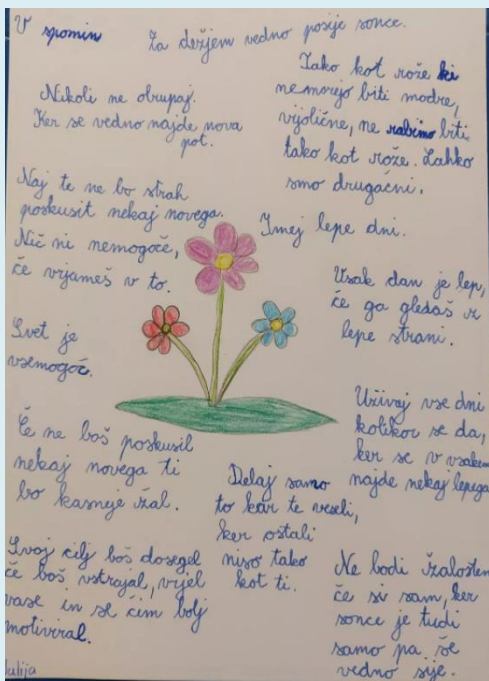 V spomin
Za dežjem vedno posije sonce.
Nikoli ne obrupaj.
Ker se vedno najde nova
pot.
Tako kot rože ki
nemorejo biti modre,
vijolične, ne rabimo biti
tako kot rože. Lahko
smo drugačni.
Naj te ne bo strah
poskusit nekaj novega.
Nič ni nemogoče,
če vrjameš v to.
Imej lepe dni.
Vsak dan je lep,
če ga gledaš iz
lepe strani.
Svet je
vsemogoč.
Uživaj vse dni
kolikor se da,
ker se v vsakem
najde nekaj lepega
Če ne boš poskusil
nekaj novega ti
bo kasneje žal.
Delaj samo
to kar te veseli,
ker ostali
niso tako
kot ti.
Svoj cilj boš dosegel
če boš vstrajal, vrjel
vase in se čim bolj
motiviral.
Ne bodi žalosten
če si sam, ker
sonce je tudi
samo pa še
vedno sije.
Julija